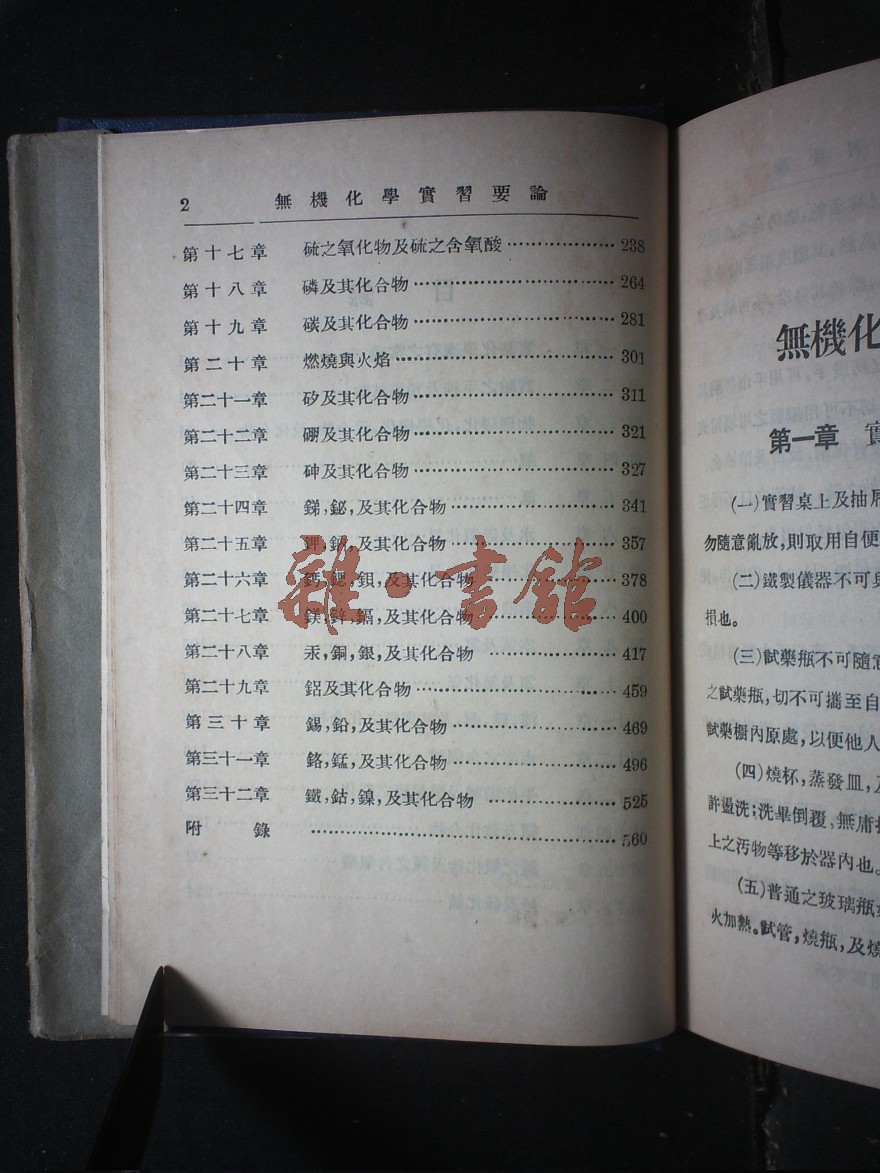 2 無機化學實習要論
第十七章 硫之氧化物及硫之含氧酸 ……………… 238
第十八章 磷及其化合物 ……………………………… 264
第十九章 碳及其化合物 ……………………………… 281
第二十章 燃燒與火焰 ………………………………… 301
第二十一章 矽及其化合物 …………………………… 311
第二十二章 硼及其化合物 …………………………… 321
第二十三章 砷及其化合物 …………………………… 327
第二十四章 銻,鉍,及其化合物 ……………………… 341
第二十五章 鉀,鈉,及其化合物 ……………………… 357
第二十六章 鈣,鍶,鋇,及其化合物 ………………… 378
第二十七章 鎂,鋅,鎘,及其化合物 ………………… 400
第二十八章 汞,銅,銀,及其化合物 ………………… 417
第二十九章 鋁及其化合物 …………………………… 459
第三十章 錫,鉛,及其化合物 ………………………… 469
第三十一章 鉻,錳,及其化合物 ……………………… 496
第三十二章 鐵,鈷,鎳,及其化合物 ………………… 525
附錄 …………………………………………………… 560
雜·書館
無機化
第一章 實
(一)實習桌上及抽屜
勿隨意亂放,則取用自便
(二)鐵製儀器不可與
損也。
(三)試藥瓶不可隨意
之試藥瓶,切不可攜至自
試藥櫥內原處,以便他人
(四)燒杯,蒸發皿,及
許盪洗;洗畢倒覆,無庸揩
上之污物等移於器內也。
(五)普通之玻璃瓶
火加熱。試管,燒瓶,及燒